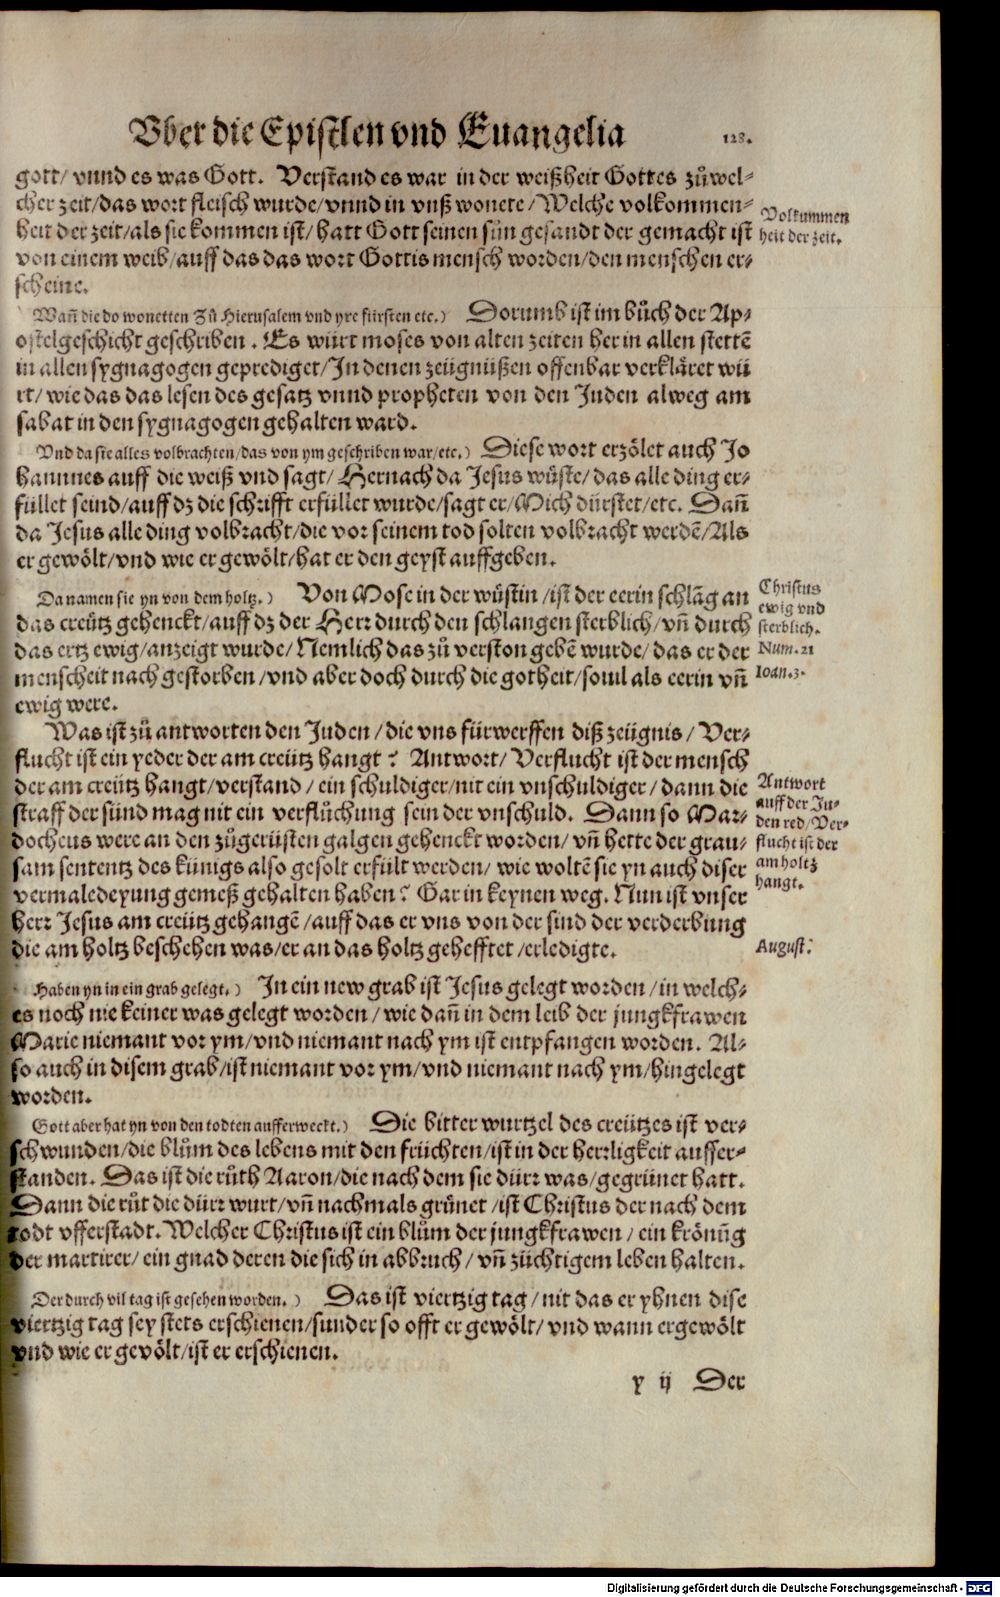 Vber die Epistlen vnd Euangelia
128.
gott/ vnnd es was Gott. Verstand es war in der weißheit Gottes zů wel-
cher zeit/das wort fleisch wurde/vnnd in vnß wonete/Welche volkommen-
heit der zeit/als sie kommen ist/hatt Gott seinen sůn gesandt der gemacht ist
von einem weib/auff das das wort Gottis mensch worden/den menschen er-
scheine.
Volkummen
heit der zeit.
Wañ die do wonetten Zů Hierusalem vnd yre fürsten etc.) Dorumb ist im bůch der Ap-
ostelgeschicht geschriben. Es würt moses von alten zeiten her in allen stettē
in allen sygnagogen geprediget/In denen zeügnüßen offenbar verkläret wü
rt/wie das das lesen des gesatz vnnd propheten von den Juden alweg am
sabat in den sygnagogen gehalten ward.
Vnd da sie alles volbrachten/das von ym geschriben war/etc.) Diese wort erzölet auch Jo
hannnes auff die weiß vnd sagt/Hernach da Jesus wüste/das alle ding er-
füllet seind/auff dz die schrifft erfüllet wurde/sagt er/Mich dürstet/etc. Dañ
da Jesus alle ding volbracht/die vor seinem tod solten volbracht werdē/Als
er gewölt/vnd wie er gewölt/hat er den geyst auffgeben.
Da namen sie yn von dem holtz.) Von Mose in der wüstin/ist der eerin schlāg an
das creütz gehenckt/auff dz der Herr durch den schlangen sterblich/vñ durch
das ertz ewig/anzeigt wurde/Nemlich das zů verston gebē wurde/das er der
menscheit nach gestorben/vnd aber doch durch die gotheit/souil als eerin vñ
ewig were.
Christus
ewig vnd
sterblich.
Num. 21
Ioan. 3.
Was ist zů antworten den Juden/die vns fürwerffen diß zeügnis/Ver-
flucht ist ein yeder der am creütz hangt? Antwort/Verflucht ist der mensch
der am creütz hangt/verstand/ein schuldiger/nit ein vnschuldiger/dann die
straff der sünd mag nit ein verflůchung sein der vnschuld. Dann so Mar-
docheus were an den zůgerüsten galgen gehenckt worden/vñ hette der grau-
sam sententz des künigs also gesolt erfült werden/wie woltē sie yn auch diser
vermaledeyung gemeß gehalten haben? Gar in keynen weg. Nun ist vnser
herr Jesus am creütz gehangē/auff das er vns von der sind der verderbung
die am holtz beschehen was/er an das holtz gehefftet/erledigte.
Antwort
auff der Ju-
den red/Ver-
flucht ist der
am holtz
hangt.
August.
Haben yn in ein grab gelegt.) In ein new grab ist Jesus gelegt worden/in welch-
es noch nie keiner was gelegt worden/wie dañ in dem leib der jungkfrawen
Marie niemant vor ym/vnd niemant nach ym ist entpfangen worden. Al-
so auch in disem grab/ist niemant vor ym/vnd niemant nach ym/hingelegt
worden.
Gott aber hat yn von den todten aufferweckt.) Die bitter wurtzel des creützes ist ver-
schwunden/die blům des lebens mit den früchten/ist in der herrligkeit auffer-
standen. Das ist die růth Aaron/die nach dem sie dürr was/gegrünet hatt.
Dann die růt die dürr wurt/vñ nachmals grünet/ist Christus der nach dem
todt vfferstadt. Welcher Christus ist ein blům der jungkfrawen/ein krönūg
der martirer/ein gnad deren die sich in abbruch/vñ züchtigem leben halten.
Der durch vil tag ist gesehen worden.) Das ist viertzig tag/nit das er yhnen dise
viertzig tag sey stets erschienen/sunder so offt er gewölt/vnd wann er gewölt
vnd wie er gevölt/ist er erschienen.
y ij Der
Digitalisierung gefördert durch die Deutsche Forschungsgemeinschaft - DFG